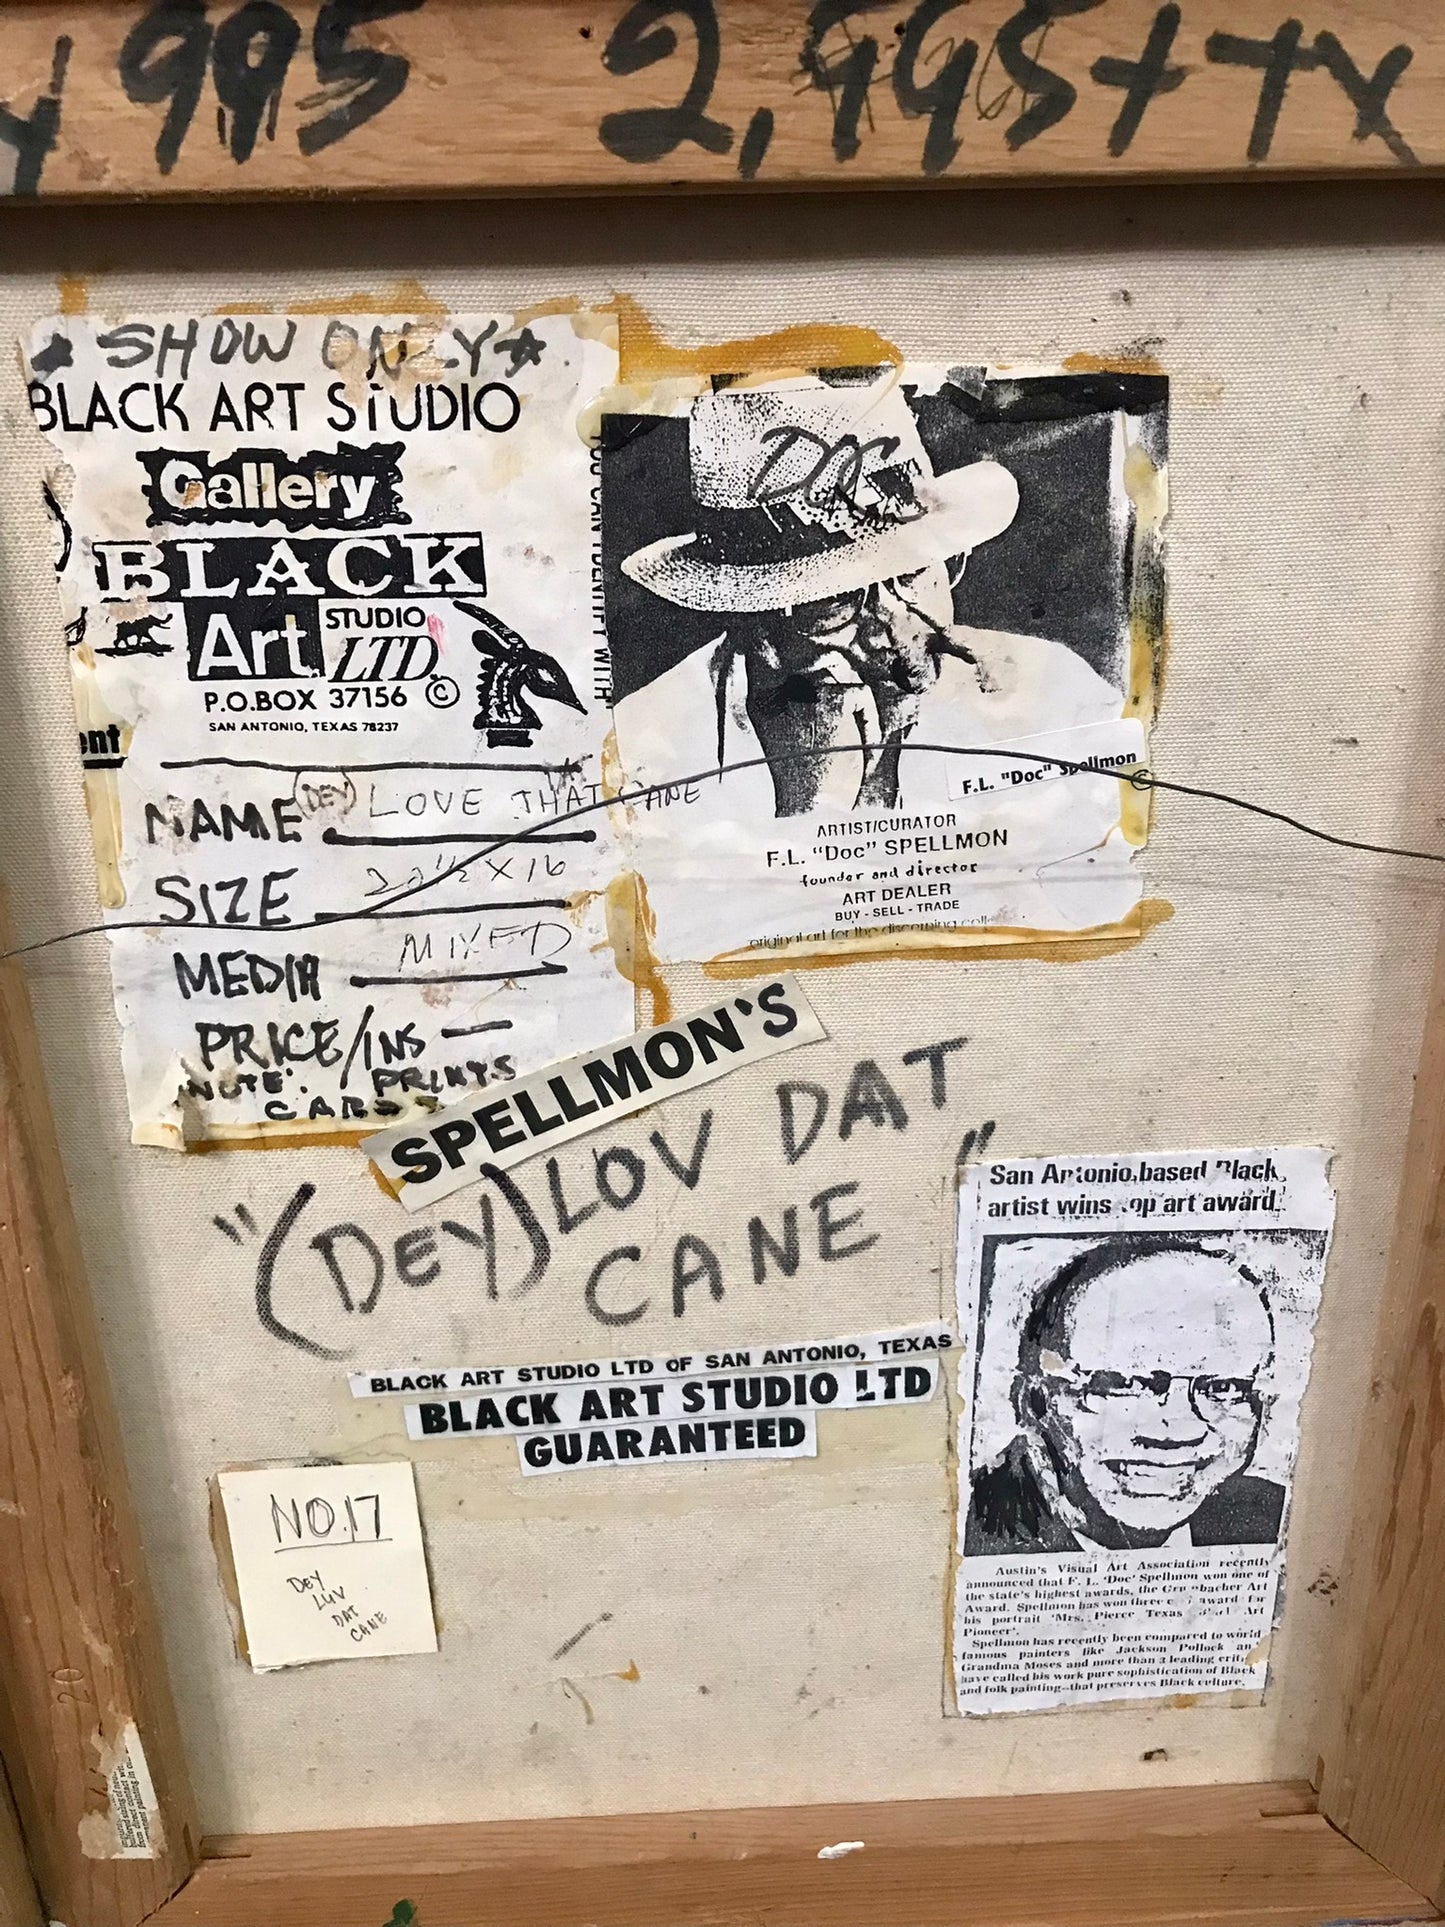 4,995 2,995 + TX
★ SHOW ONLY ★
BLACK ART STUDIO
Gallery
BLACK
Art STUDIO
LTD.
P.O.BOX 37156 ©
SAN ANTONIO, TEXAS 78237
ent
NAME (DEY) LOVE THAT CANE
SIZE 22 1/2 X 16
MEDIA MIXED
PRICE/INS —
NOTE: PRINTS
CARDS
YOU CAN IDENTIFY WITH
DOC
F.L. "Doc" Spellmon
©
ARTIST/CURATOR
F.L. "Doc" SPELLMON
founder and director
ART DEALER
BUY - SELL - TRADE
original art for the discerning
SPELLMON'S
"(DEY) LOV DAT
CANE"
BLACK ART STUDIO LTD OF SAN ANTONIO, TEXAS
BLACK ART STUDIO LTD
GUARANTEED
NO.17
DEY
LUV
DAT
CANE
San Antonio,based Black
artist wins top art award
Austin's Visual Art Association recently
announced that F. L. 'Doc' Spellmon won one of
the state's highest awards, the Grumbacher Art
Award. Spellmon has won three award for
his portrait 'Mrs. Pierce Texas Art
Pioneer'.
Spellmon has recently been compared to world
famous painters like Jackson Pollock an
Grandma Moses and more than 3 leading criti
have called his work pure sophistication of Black
and folk painting--that preserves Black culture.
20
from direct contact